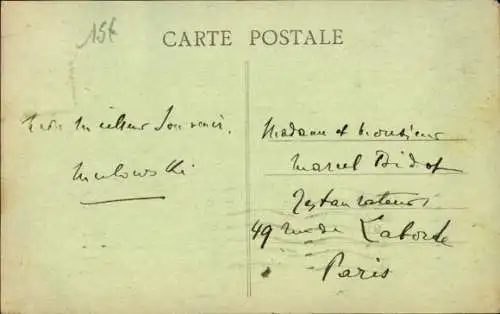 15€
CARTE POSTALE
meilleur Souvenir.
Madame et Monsieur
Marcel Bidot
Restaurateurs
49 rue de Laborde
Paris